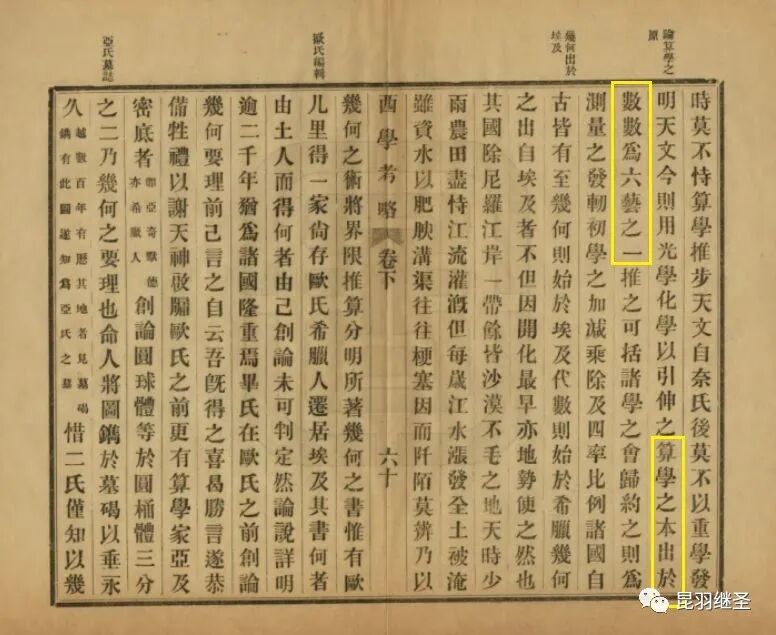 論算學之
原
時莫不恃算學推步天文自奈氏後莫不以重學發
明天文今則用光學化學以引伸之算學之本出於
數數爲六藝之一推之可括諸學之會歸約之則爲
測量之發軔初學之加減乘除及四率比例諸國自
幾何出於
埃及
古皆有至幾何則始於埃及代數則始於希臘幾何
之出自埃及者不但因開化最早亦地勢使之然也
其國除尼羅江岸一帶餘皆沙漠不毛之地天時少
雨農田盡恃江流灌漑但每歲江水漲發全土被淹
雖資水以肥腴溝渠往往梗塞因而阡陌莫辨乃以
西學考略 卷下 六十
幾何之術將界限推算分明所著幾何之書惟有歐
氏編輯
几里得一家尙存歐氏希臘人遷居埃及其書何者
由土人而得何者由己創論未可判定然論說詳明
逾二千年猶爲諸國隆重焉畢氏在歐氏之前創論
幾何要理前己言之自云吾旣得之喜曷勝言遂恭
備牲禮以謝天神啟牖歐氏之前更有算學家亞及
密底者 卽亞奇默德亦希臘人 創論圓球體等於圓桶體三分
亞氏墓誌
之二乃幾何之要理也命人將圖鐫於墓碣以垂永
久 越數百年有歷其地者見墓碣鐫有此圖遂知爲亞氏之墓 惜二氏僅知以幾
昆羽继圣